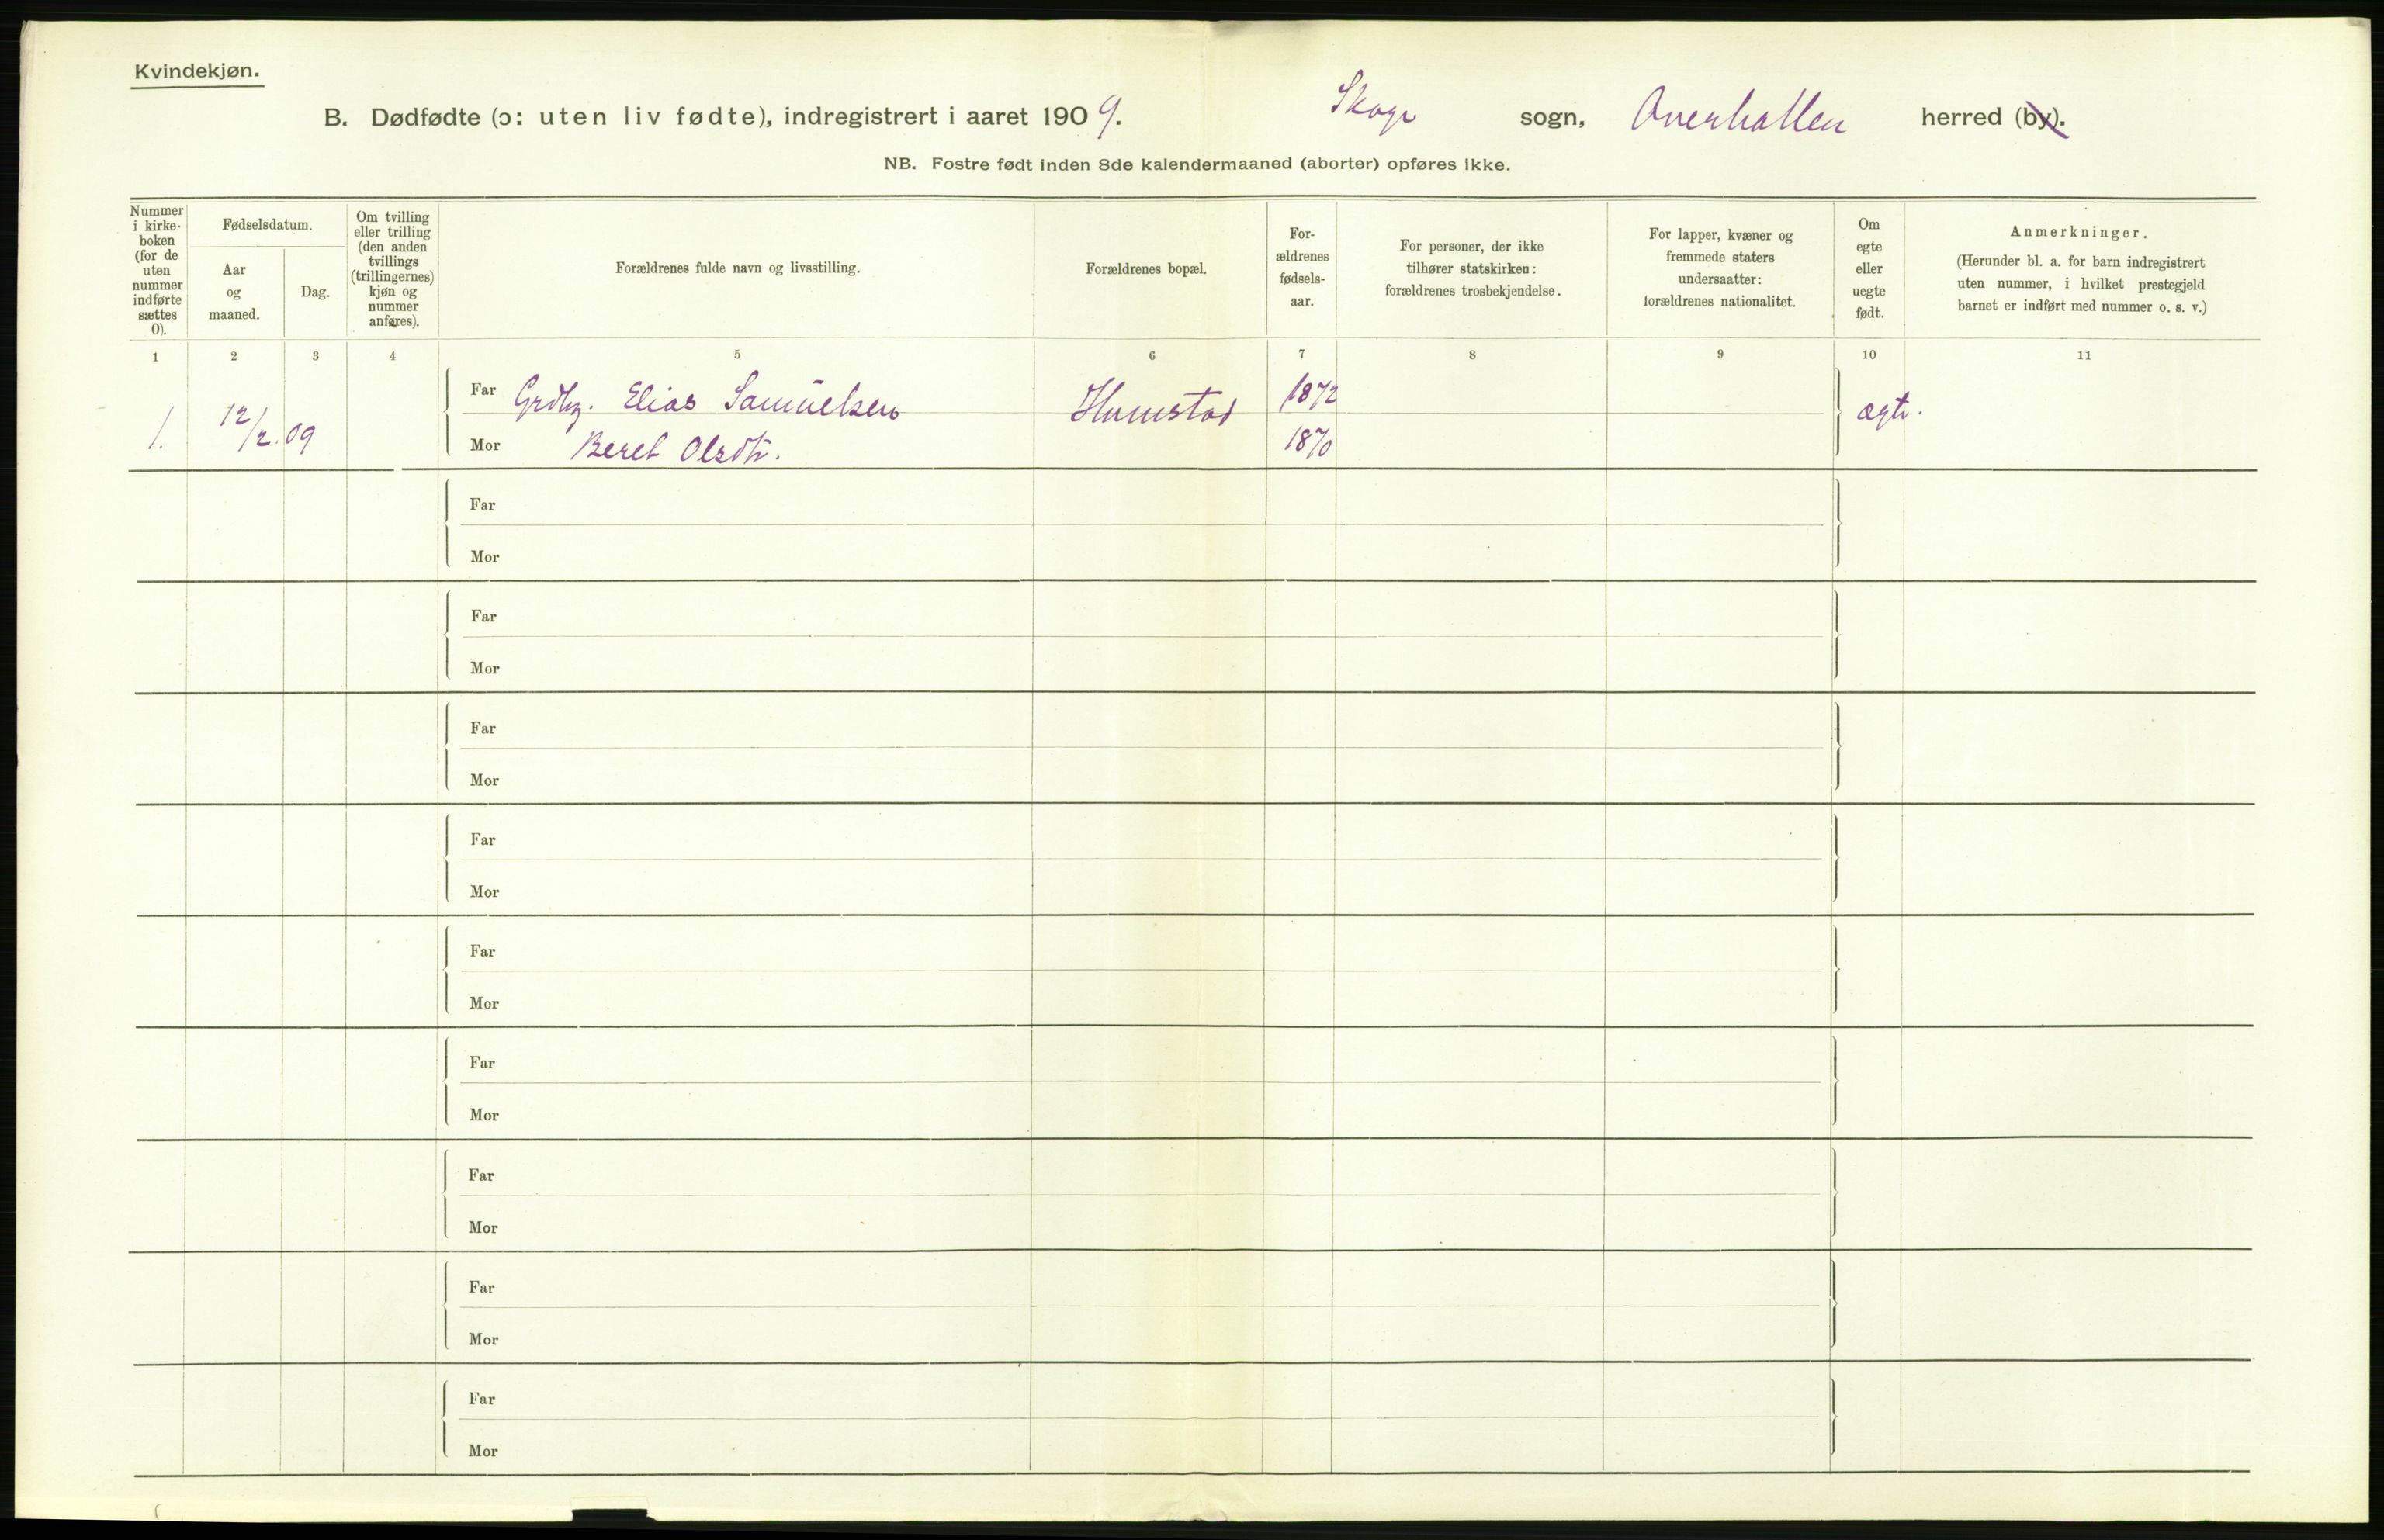 Kvindekjøn.
B. Dødfødte (ɔ: uten liv fødte), indregistrert i aaret 1909. Skage sogn, Overhallen herred (by).
NB. Fostre født inden 8de kalendermaaned (aborter) opføres ikke.
Nummer i kirke-boken (for de uten nummer indførte sættes 0).
Fødselsdatum.
Aar og maaned.
Dag.
Om tvilling eller trilling (den anden tvillings (trillingernes) kjøn og nummer anføres).
Forældrenes fulde navn og livsstilling.
Forældrenes bopæl.
For-ældrenes fødsels-aar.
For personer, der ikke tilhører statskirken: forældrenes trosbekjendelse.
For lapper, kvæner og fremmede staters undersaatter: forældrenes nationalitet.
Om egte eller uegte født.
Anmerkninger.
(Herunder bl. a. for barn indregistrert uten nummer, i hvilket prestegjeld barnet er indført med nummer o. s. v.)
1 2 3 4 5 6 7 8 9 10 11
Far Grdbr. Elias Samuelsen Humstad 1872 ægte.
1. 12/2.09
Mor Beret Olsdtr. 1870
Far
Mor
Far
Mor
Far
Mor
Far
Mor
Far
Mor
Far
Mor
Far
Mor
Far
Mor
Far
Mor